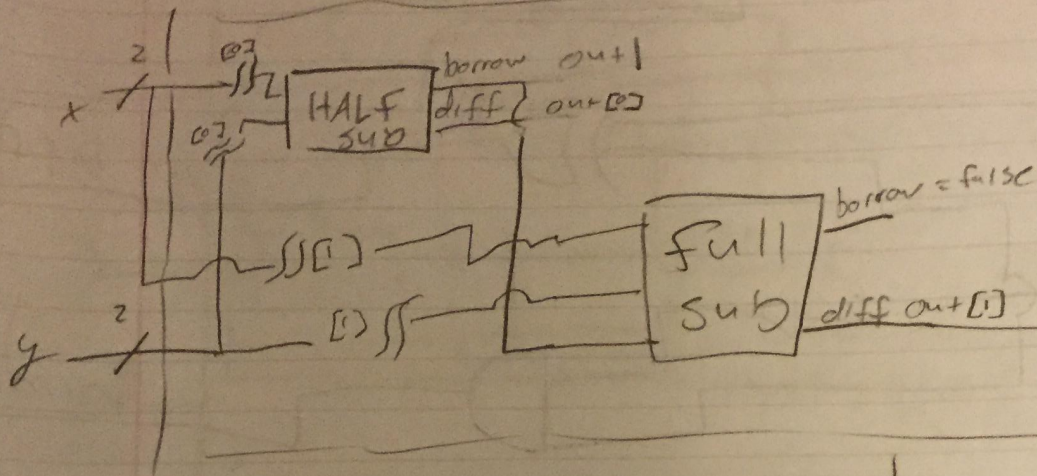 2
[0]
x
HALF
sub
borrow out1
diff out[0]
[0]
[1]
full
sub
borrow = false
diff out[1]
2
[1]
y